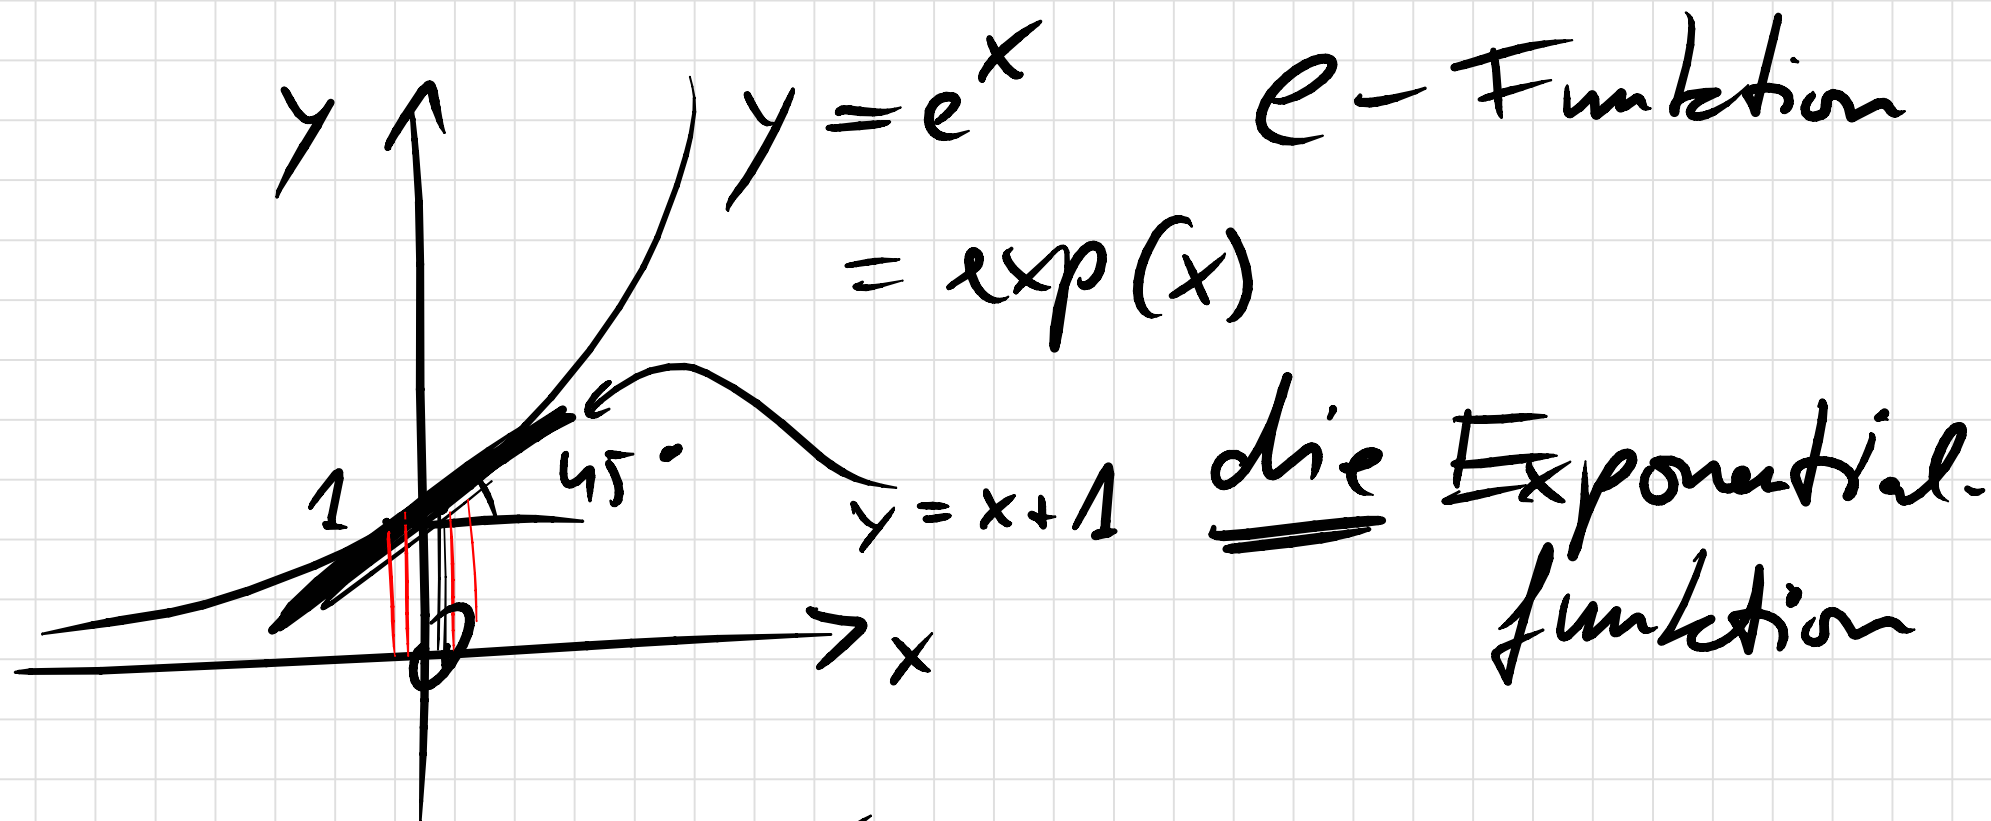 y
y = e^x
e-Funktion
= exp(x)
45°
1
y = x+1
die Exponential-
funktion
0
x